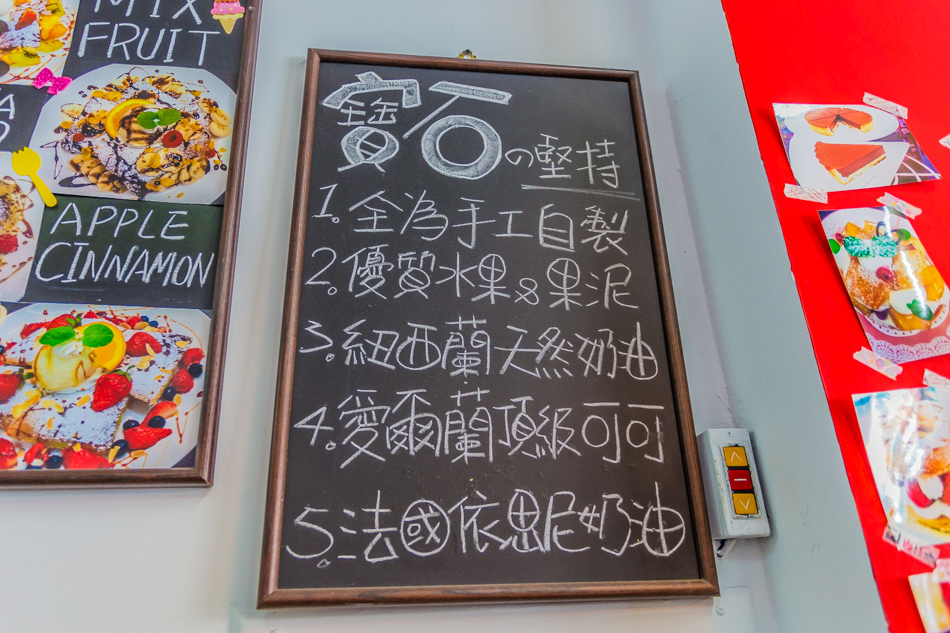 MIX
FRUIT
APPLE
CINNAMON
寶石の堅持
1. 全為手工自製
2. 優質水果&果泥
3. 紐西蘭天然奶油
4. 愛爾蘭頂級可可
5. 法國依思尼奶油